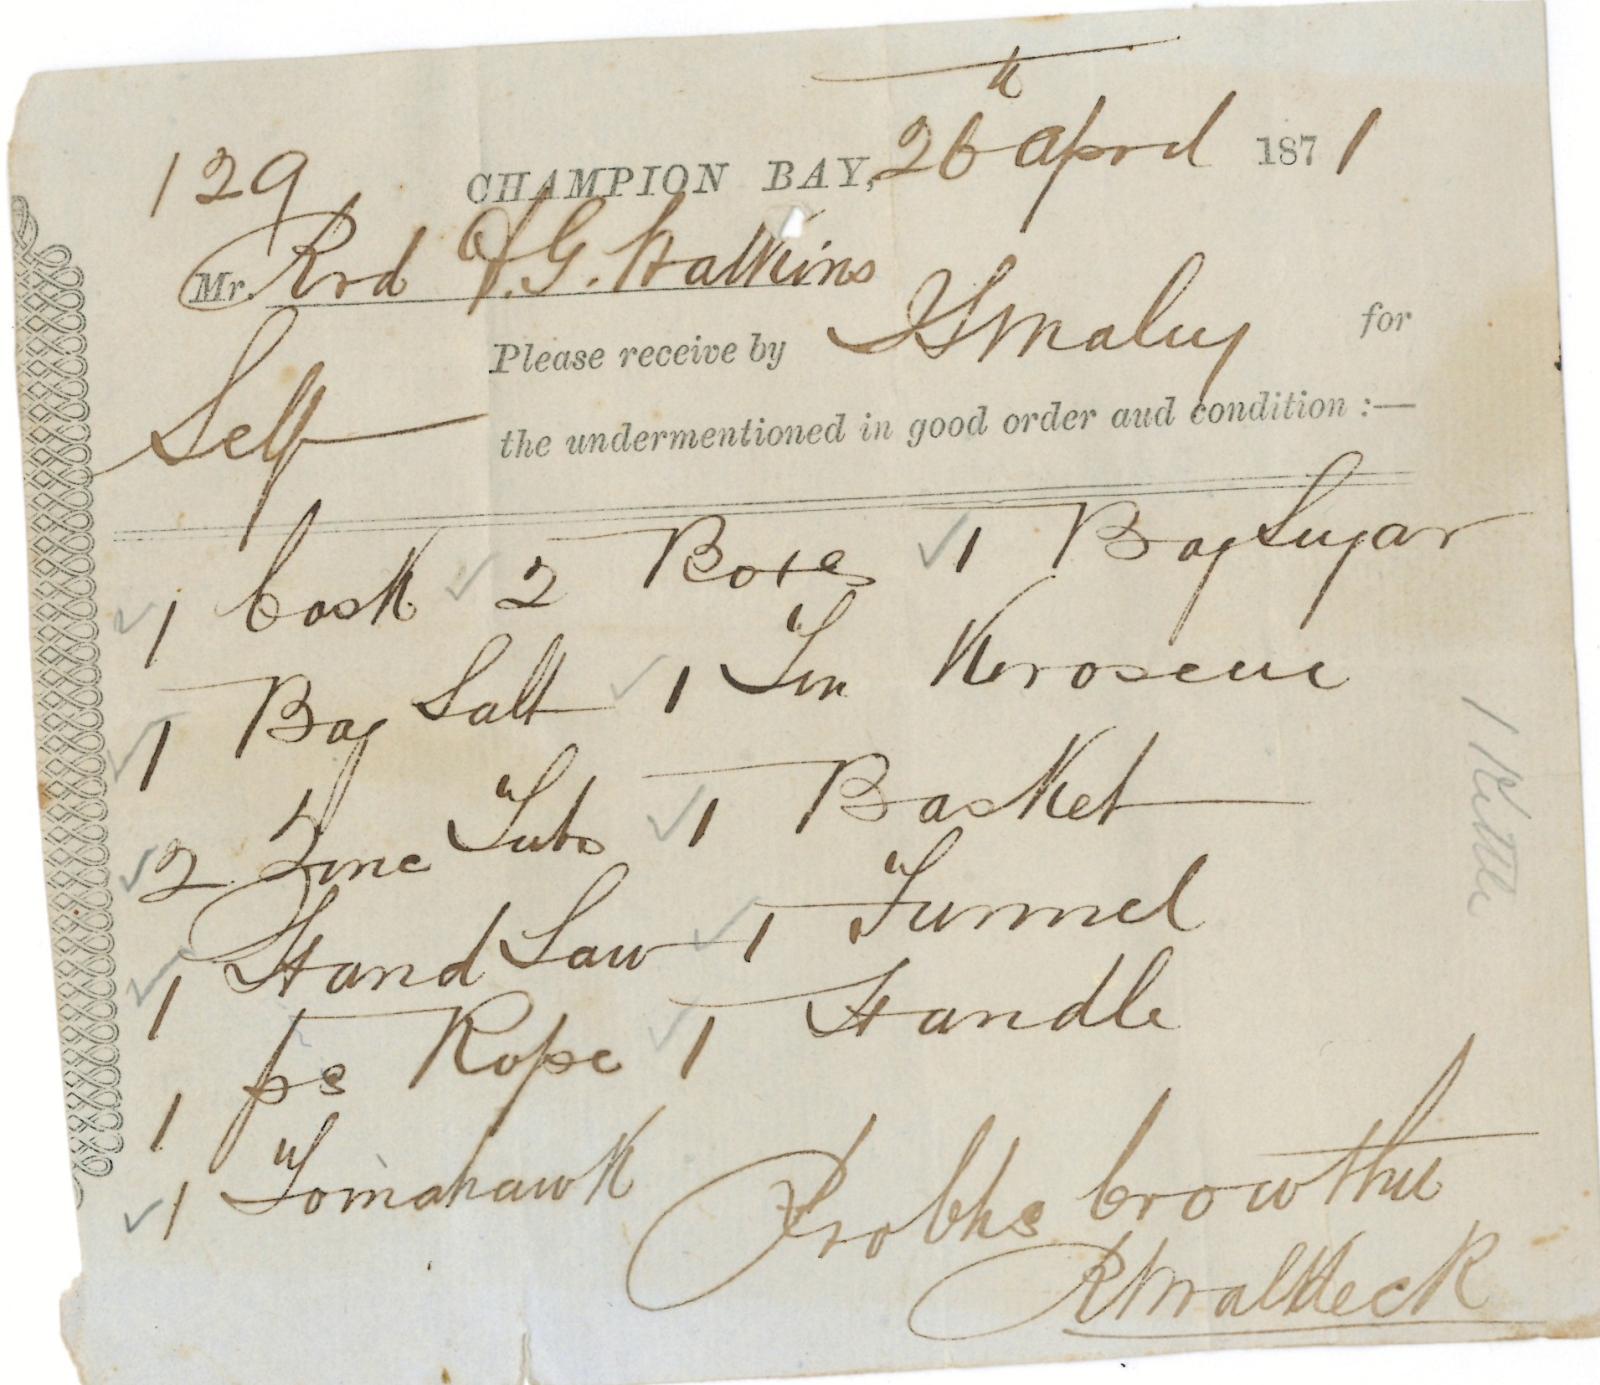 129 CHAMPION BAY, 26th April 1871
Mr. Rvd J. G. Watkins
Please receive by I Smaley for
Self the undermentioned in good order and condition :—
1 Cask 2 Boxes 1 Bag Sugar
1 Bag Salt 1 Tin Kerosene
2 Zinc Tubs 1 Basket
1 Hand Saw 1 Funnel
1 ps Rope 1 Handle
1 Tomahawk
Crowther
Waldeck
1 Kettle